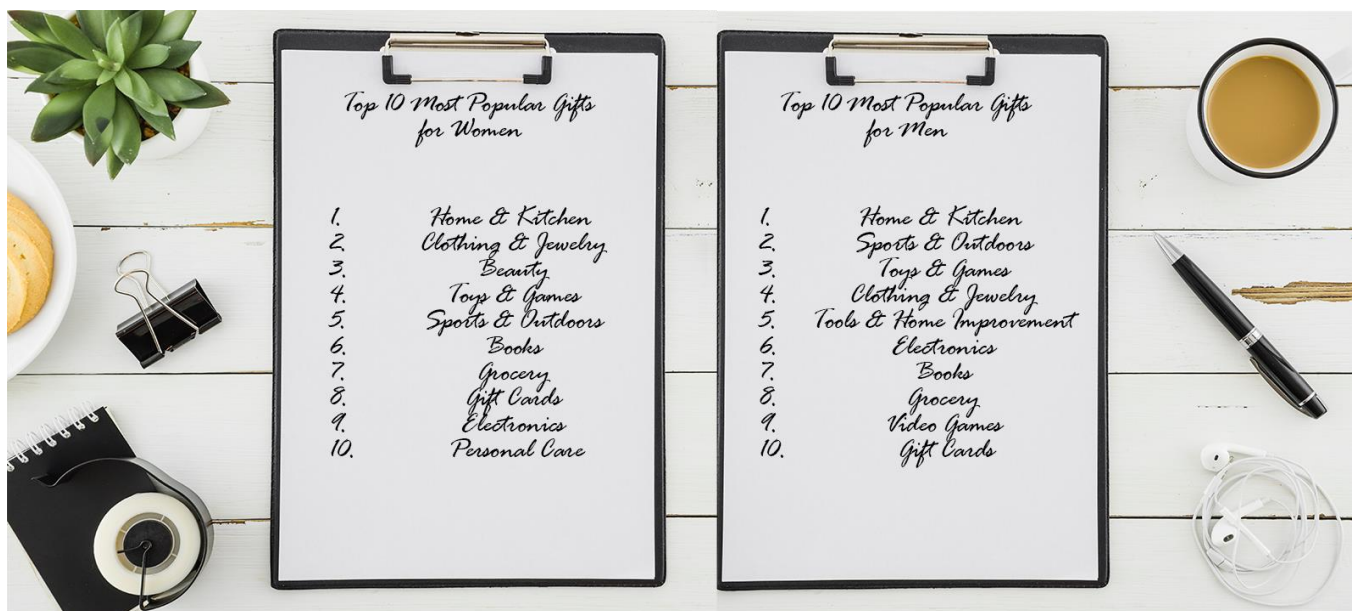 Top 10 Most Popular Gifts
for Women
1. Home & Kitchen
2. Clothing & Jewelry
3. Beauty
4. Toys & Games
5. Sports & Outdoors
6. Books
7. Grocery
8. Gift Cards
9. Electronics
10. Personal Care
Top 10 Most Popular Gifts
for Men
1. Home & Kitchen
2. Sports & Outdoors
3. Toys & Games
4. Clothing & Jewelry
5. Tools & Home Improvement
6. Electronics
7. Books
8. Grocery
9. Video Games
10. Gift Cards